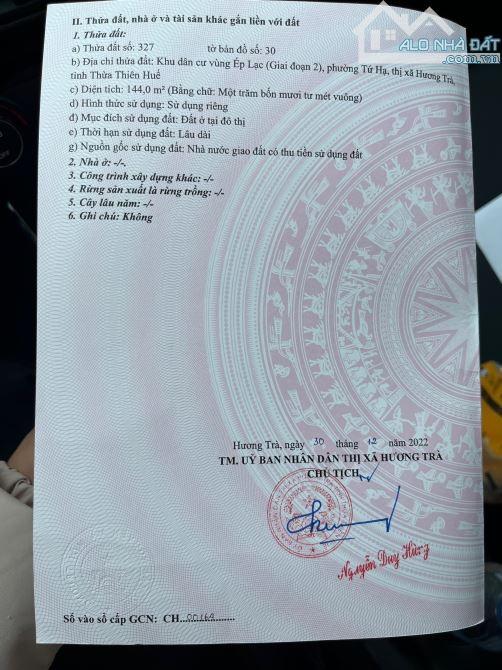 ALO NHÀ ĐẤT
Alonhadat.com.vn
II. Thửa đất, nhà ở và tài sản khác gắn liền với đất
1. Thửa đất:
a) Thửa đất số: 327 tờ bản đồ số: 30
b) Địa chỉ thửa đất: Khu dân cư vùng Ép Lạc (Giai đoạn 2), phường Tứ Hạ, thị xã Hương Trà,
tỉnh Thừa Thiên Huế
c) Diện tích: 144,0 m² (Bằng chữ: Một trăm bốn mươi tư mét vuông)
d) Hình thức sử dụng: Sử dụng riêng
đ) Mục đích sử dụng đất: Đất ở tại đô thị
e) Thời hạn sử dụng đất: Lâu dài
g) Nguồn gốc sử dụng đất: Nhà nước giao đất có thu tiền sử dụng đất
2. Nhà ở: -/-.
3. Công trình xây dựng khác: -/-
4. Rừng sản xuất là rừng trồng: -/-
5. Cây lâu năm: -/-
6. Ghi chú: Không
Hương Trà, ngày 30 tháng 12 năm 2022
TM. UỶ BAN NHÂN DÂN THỊ XÃ HƯƠNG TRÀ
CHỦ TỊCH
Nguyễn Duy Hùng
Số vào sổ cấp GCN: CH